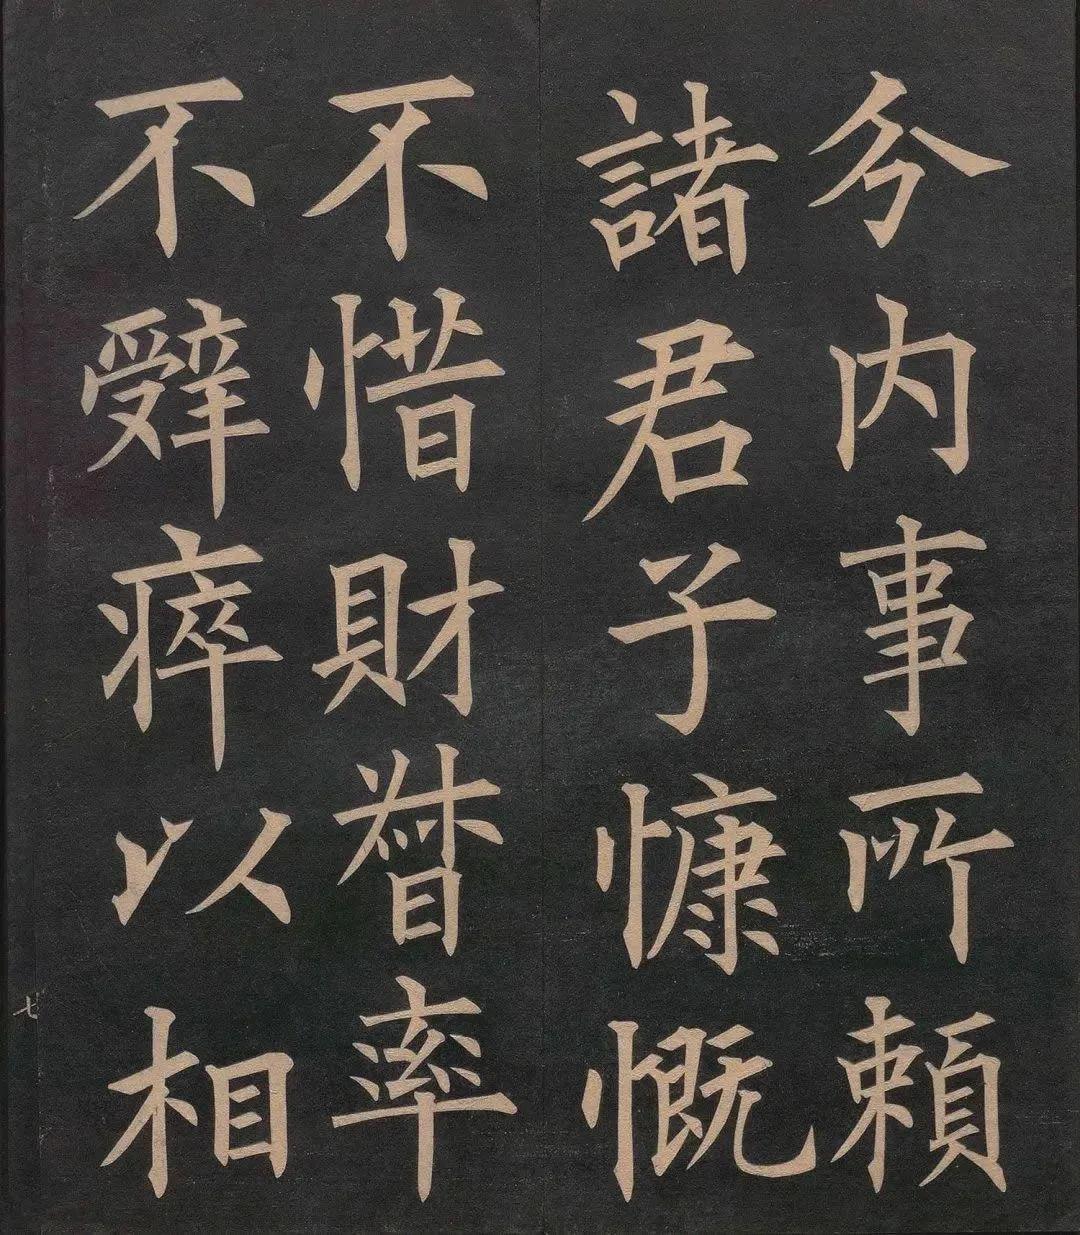 分内事所賴
諸君子慷慨
不惜財督率
不辤瘁以相
七